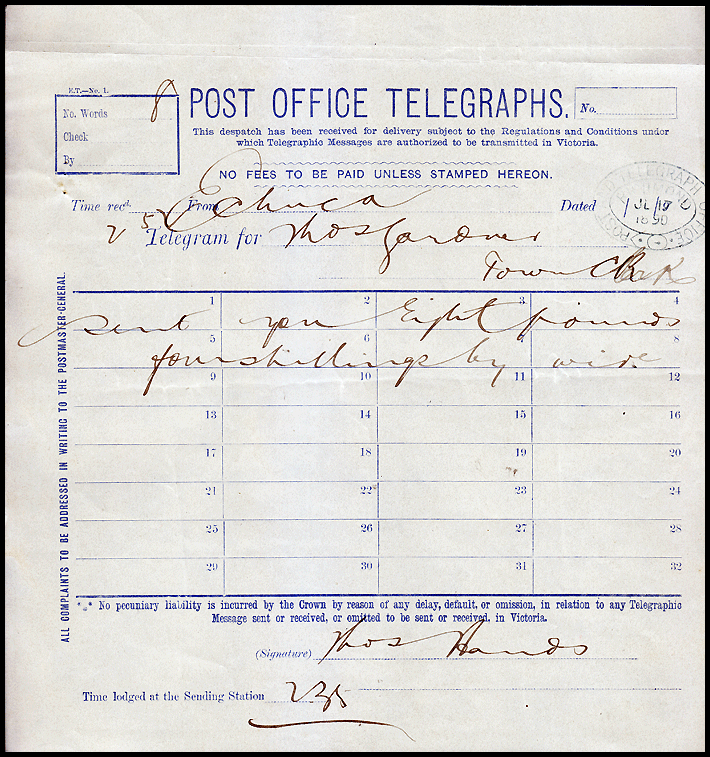 E.T.—No. 1.
No. Words 8
Check
By
POST OFFICE TELEGRAPHS.
No.
This despatch has been received for delivery subject to the Regulations and Conditions under
which Telegraphic Messages are authorized to be transmitted in Victoria.
NO FEES TO BE PAID UNLESS STAMPED HEREON.
Time recd. From Echuca Dated
POST TELEGRAPH OFFICE
JL 10
1890
2 52 Telegram for Thos Gardner
Town Clerk
1 2 3 4
sent you Eight pounds
5 6 7 8
four shillings by wire
9 10 11 12
13 14 15 16
17 18 19 20
21 22 23 24
25 26 27 28
29 30 31 32
ALL COMPLAINTS TO BE ADDRESSED IN WRITING TO THE POSTMASTER-GENERAL.
*.* No pecuniary liability is incurred by the Crown by reason of any delay, default, or omission, in relation to any Telegraphic
Message sent or received, or omitted to be sent or received, in Victoria.
(Signature) Thos Hands
Time lodged at the Sending Station 235